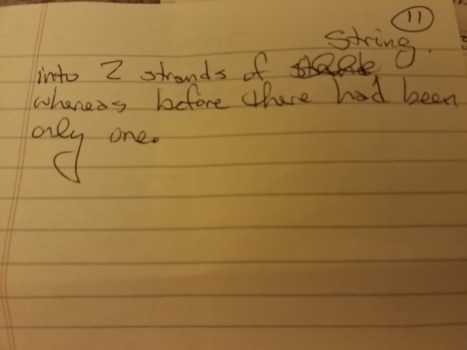 11
string.
into 2 strands of
whereas before there had been
only one.